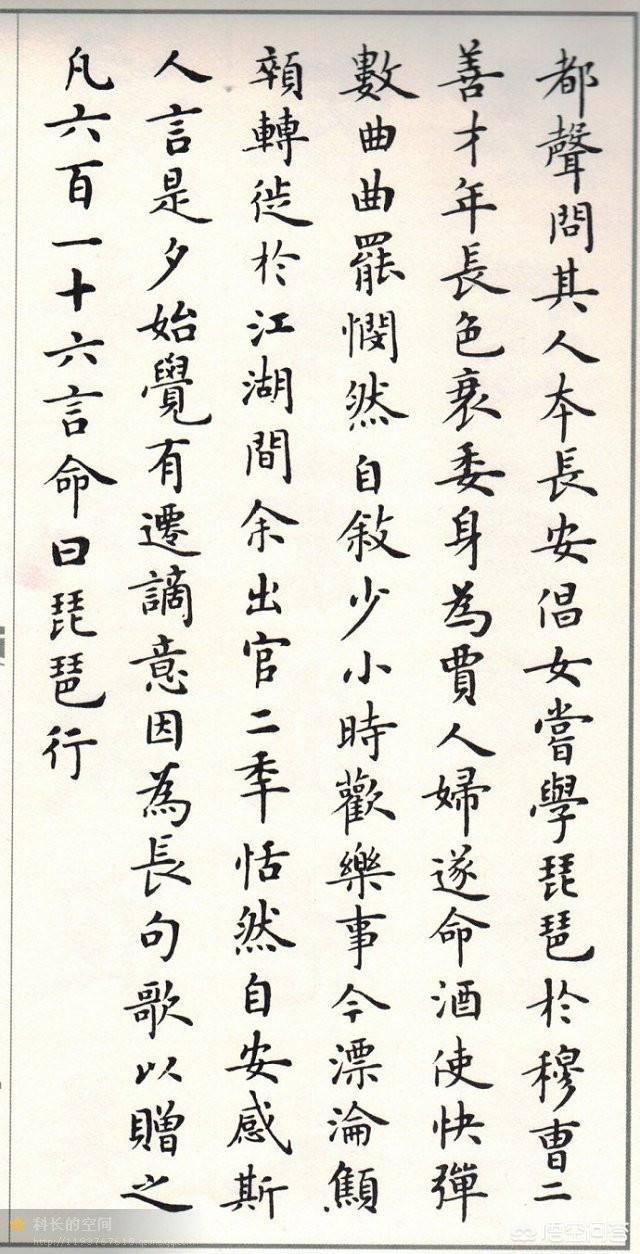 都聲問其人本長安倡女嘗學琵琶於穆曹二
善才年長色衰委身為賈人婦遂命酒使快彈
數曲曲罷憫然自敘少小時歡樂事今漂淪顦
顇轉徙於江湖間余出官二年恬然自安感斯
人言是夕始覺有遷謫意因為長句歌以贈之
凡六百一十六言命曰琵琶行
科长的空间
悟空问答